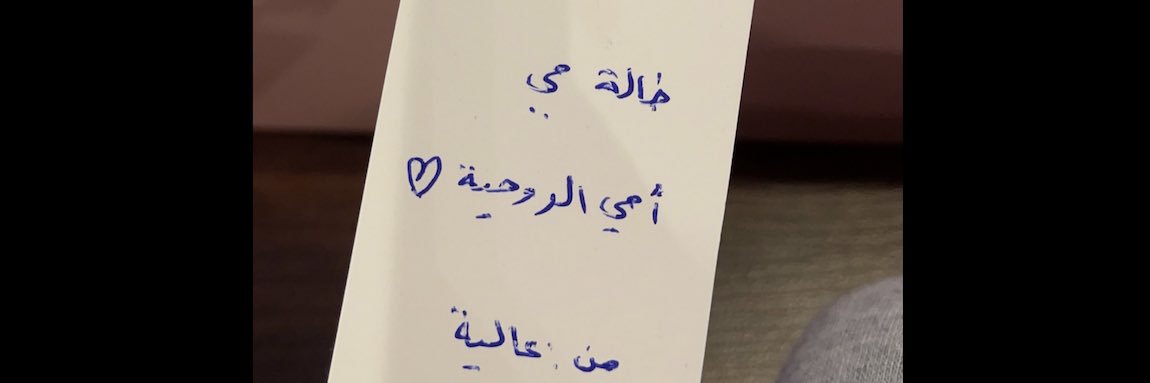 خالة مي
أمي الروحية ♡
من : عالية